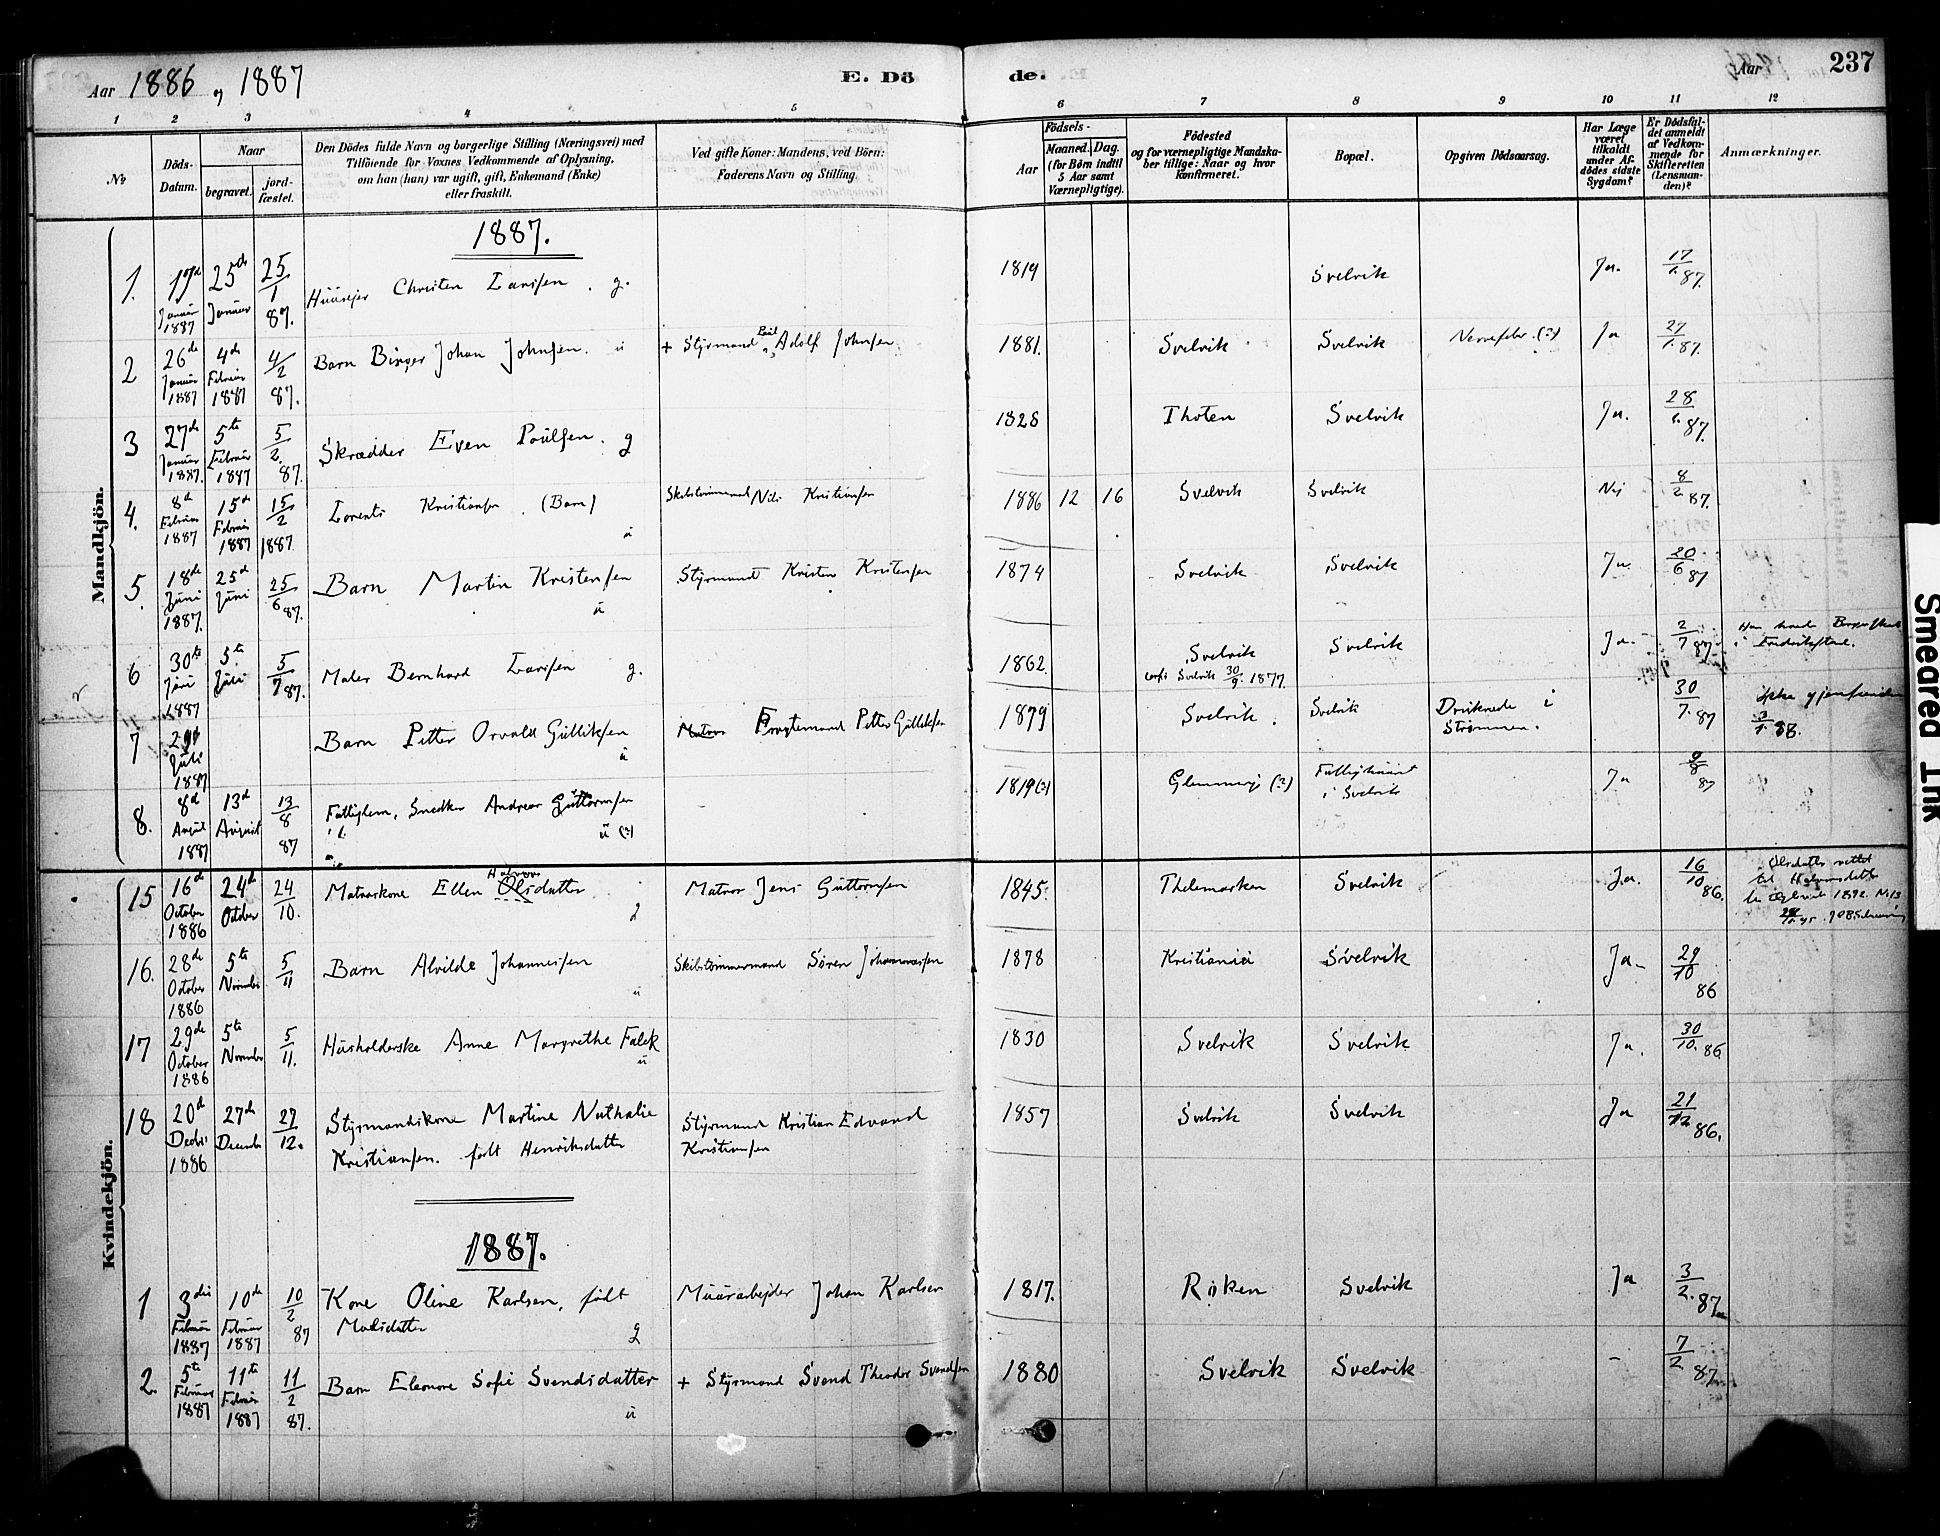 Aar 1886 og 1887 E. Dö de. Aar 237
1 2 3 4 5 6 7 8 9 10 11 12
No
Döds-
Datum.
Naar
begravet.
jord-
fæstet.
Den Dödes fulde Navn og borgerlige Stilling (Næringsvei) med
Tilföiende for Voxnes Vedkommende af Oplysning,
om han (hun) var ugift, gift, Enkemand (Enke)
eller fraskilt.
Ved gifte Koner: Mandens, ved Börn:
Faderens Navn og Stilling.
Födsels-
Aar
Maaned. Dag.
(for Börn indtil
5 Aar samt
Værnepligtige).
Födested
og for værnepligtige Mandska-
ber tillige: Naar og hvor
konfirmeret.
Bopæl.
Opgiven Dödsaarsag.
Har Læge
været
tilkaldt
under Af-
dödes sidste
Sygdom?
Er Dödsfal-
det anmeldt
af Vedkom-
mende for
Skifteretten
(Lensman-
den)?
Anmærkninger.
Mandkjön.
1887.
1. 17de Januar 1887 25de Januar 25/1 87. Huusejer Christen Larssen. g. 1819 Svelvik Ja. 17/1. 87.
2 26de Januar 1887 4de Februar 1887 4/2 87. Barn Birger Johan Johnsen. u + Styrmand Paul Adolf Johnsen 1881. Svelvik Svelvik Nervefeber (?) Ja 27/1. 87.
3 27de Januar 1887. 5te Februar 1887 5/2. 87. Skrædder Even Poulsen. g 1828 Thoten Svelvik Ja. 28/1. 87.
4. 8de Februar 1887 15de Februar 1887 15/2 1887 Lorents Kristiansen. (Barn) u Skibstømmermand Nils Kristiansen 1886 12 16 Svelvik Svelvik Nei 8/2 87.
5. 18de Juni 1887. 25de Juni 25/6 87. Barn Martin Kristensen u Styrmand Kristen Kristensen 1874 Svelvik Svelvik Ja 20/6 87
6 30te Juni 1887 5te Juli 5/7 87. Maler Bernhard Larssen g. 1862 Svelvik
conf. Svelvik 30/9. 1877. Svelvik Ja. 2/7 87. Han havde Borgerskab
i Fredrikstad.
7 29de Juli 1887 Barn Petter Orvald Gulliksen u Matros Fragtemand Petter Gulliksen 1879 Svelvik. Svelvik Druknede i
Strømmen. 30/7. 87 ikke gjenfunden
3/1. 88.
8. 8de August 1887 13de August 13/8 87 Fattiglem, Snedker Andreas Guttormsen
u (?) 1819(?) Glemminge (?) Fattighuset
i Svelvik Ja 9/8 87
Kvindekjön.
15 16de October 1886 24de October 24/10. Matroskone Ellen Olsdatter Halvors g Matros Jens Guttormsen 1845. Thelemarken Svelvik Ja. 16/10 86. Olsdatter rettet
til Halvorsdatter
16. 28de October 1886 5te November 5/11 Barn Alvilde Johannessen u Skibstømmermand Søren Johannessen 1878 Kristiania Svelvik Ja. 29/10 86
17 29de October 1886 5te November 5/11. Husholderske Anne Margrethe Falck u 1830 Svelvik Svelvik Ja. 30/10. 86
18 20de Decbr 1886 27de December 27/12. Styrmandskone Martine Nathalie
Kristiansen. født Henriksdatter Styrmand Kristian Edvard
Kristiansen 1857 Svelvik Svelvik Ja 21/12 86.
1887.
1 3die Februar 1887 10de Februar 1887 10/2 87 Kone Oline Karlsen, født
Madsdatter g Muurarbejder Johan Karlsen 1817. Røken Svelvik Ja 3/2. 87
2. 5te Februar 1887 11te Februar 1887 11/2 87. Barn Eleonore Sofie Svendsdatter u + Styrmand Svend Theodor Svendsen 1880 Svelvik Svelvik - 7/2 87
Smeared Ink